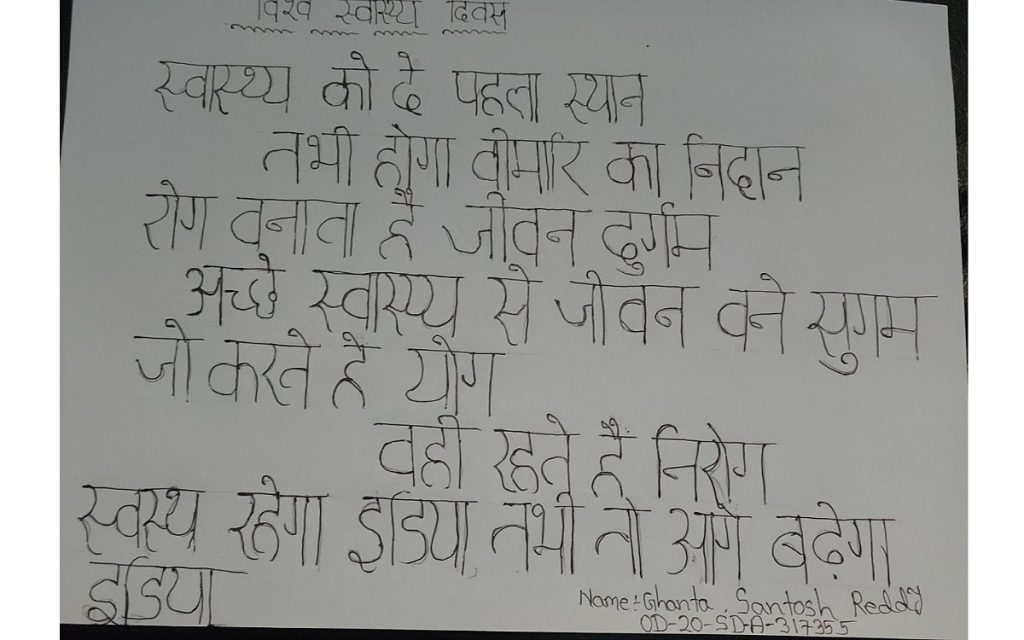 विश्व स्वास्थ्य दिवस
स्वास्थ्य को दे पहला स्थान
तभी होगा वीमारि का निदान
रोग वनाता है जीवन दुर्गम
अच्छे स्वास्थ्य से जीवन वने सुगम
जो करते है योग
वही रहते हैं निरोग
स्वस्थ रहेगा इंडिया तभी तो आगे बढ़ेगा
इंडिया
Name:- Ghanta. Santosh Reddy
OD-20-SD-A-317355